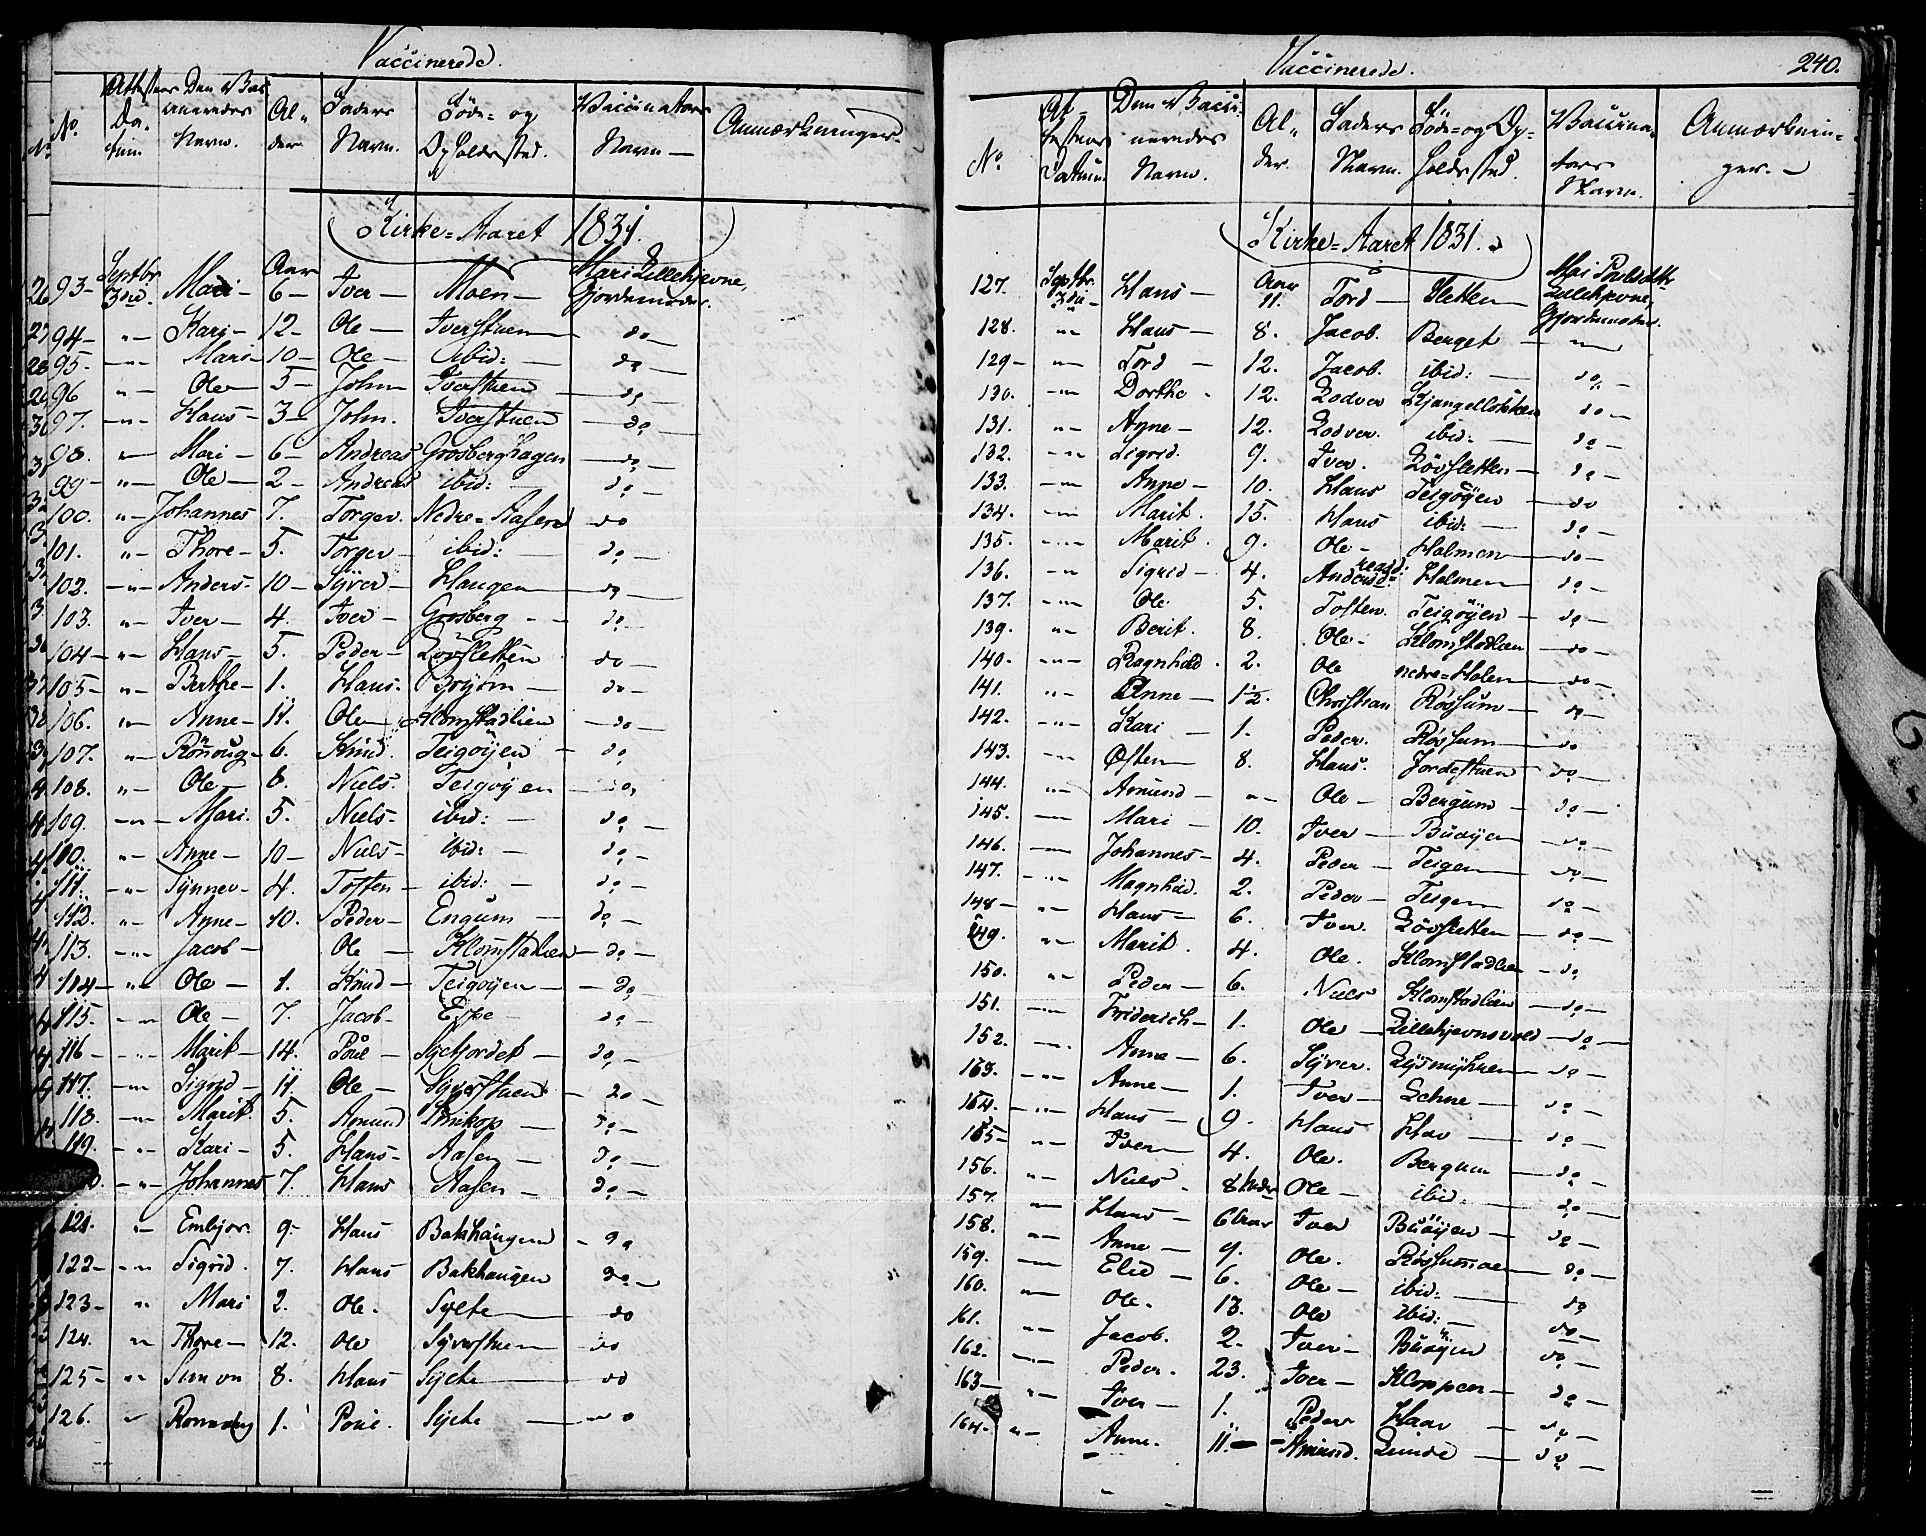 Vaccinerede.
No. Attestens Datum. Den Vaccineredes Navn. Alder. Faders Navn. Føde- og Opholdssted. Vaccinators Navn — Anmærkninger.
Kirke-Aaret 1831.
93- Septbr 3die. Mari- Aar 6- Iver- Moen- Mari Lillehjevne, Gjordemoder.
94- "- Kari- 12- Ole- Iverstuen do-
95.- "- Mari- 10- Ole- ibid:- do-
96 "- Ole- 5- John- Iverstuen do-
97. -"- Hans- 3- John. Iverstuen do-
98. "- Mari- 6- Andreas Grosberghagen do-
99- "- Ole- 2- Andreas ibid:- do-
100. "- Johannes 7. Torger. Nedre-Aasen do
101. "- Thore- 5. Torger- ibid:- do-
102. -"- Anders- 10- Syver- Haugen do-
103. "- Iver- 4. Iver- Grosberg- do-
104- "- Hans- 5. Peder- Løvsletten do-
105- "- Berthe- 1. Hans. do-
106. "- Anne- 11. Ole- Klomstadlien -do-
107. "- Rönnoug- 6. Knud. Teigøyen- do
108. "- Ole- 8. Niels. Teigøyen- do,
109. -"- Mari. 5. Niels- ibid:- do-
110. "- Anne- 10- Niels- ibid:- do-
111. -"- Synnev- 4. Tosten- ibid:- do-
112. "- Anne- 10. Peder- Engum- do-
113. -"- Jacob- Ole- Klomstadlien- do-
114- -"- Ole- 1. Knud- Teigøyen- do-
115. -"- Ole- 7. Jacob- do-
116- -"- Marit- 14. Poul- do-
117. -"- Sigrid- 11. Ole- Syverstuen- do-
118. -"- Marit. 5. Amund do-
119. -"- Kari- 5. Hans- Aasen- do-
-"- Johannes 7. Hans Aasen- do-
121. "- Embjør. 9- Hans Bakhaugen- do
122- -"- Sigrid. 7. Hans Bakhaugen do-
123- "- Mari 2. Ole. Sylte- do
124. "- Thore- 12. Ole Syverstuen- do
125- "- Simon 8. Hans Sylte- do
126. "- 1. Poul. Sylte- do
Vaccinerede. 240.
No. Attestens Datum. Den Vaccineredes Navn. Alder. Faders Navn. Føde- og Opholdssted. Vaccinators Navn. Anmærkninger. -
Kirke-Aaret 1831.
127. Septbr. 3die- Hans- Aar 11. Tord- Sletten- Mari Poulsdatter Lillehjevne, Gjordemoder.
128. "- Hans- 8. Jacob. Berget- "-
129- "- Tord- 12. Jacob. ibid:- do.-
130. -"- Dorthe. 12. Lodver Kjangelløkken do-
131. "- Agne- 12. Lodver. ibid:- do-
132. -"- Sigrid. 9. Iver. Løvsletten- do-
133. -"- Anne- 10. Hans Teigøyen- do
134. -"- Marit. 15. Hans ibid:- do-
135. -"- Marit. 9. Ole- Holmen- do-
136. "- Sigrid- 4. Holmen- do-
137. -"- Ole. 5. Tosten. Teigøyen- do-
139. "- Berit. 8. Ole- Klomstadlien- do-
140. -"- Ragnhild. 2. Ole nedre-Holen- do-
141. "- Anne- 1½. Christian Røssum- do-
142. -"- Kari- 1. Peder. Røssum- do
143. -"- Østen- 8. Hans. Jordestuen do-
144. "- Amund- "- Ole- Bergum- do-
145. -"- Mari- 10. Iver- Buøyen- do-
146. -"- Johannes- 4. Peder- Teigen- do-
147. -"- Magnhild. 2. Peder- Teigen- do-
148- "- Hans- 6. Iver. Løvsletten- do-
149. "- Marit. 4. Ole. Klomstadlien- do
150. "- Peder- 6. Niels Klomstadlien- do-
151. -"- Friderich- 1. Ole- Lillehjevnsvold- do-
152. -"- Anne- 6. Syver. do-
163. -"- Anne- 1. Iver- Lehne- do-
164. -"- Hans- 9. Hans Hav- do-
165- "- Iver- 4. Ole. Bergum- do-
156. "- Niels. 8 Ole- ibid:- do-
157. "- Hans- 6 Aar Iver Buøyen- do-
158. "- Anne- 9. Ole. Røssumoen- do-
159. -"- Elid- 6. Ole- ibid:- do
160. "- Ole. 13. Ole ibid:- do-
161. "- Jacob. 2. Iver- Buøyen do-
162. -"- Peder. 23. Iver- Kloppen- do-
163- "- Iver- 1. Peder Haav- do-
164- "- Anne. 11.- Amund. Linde- do-